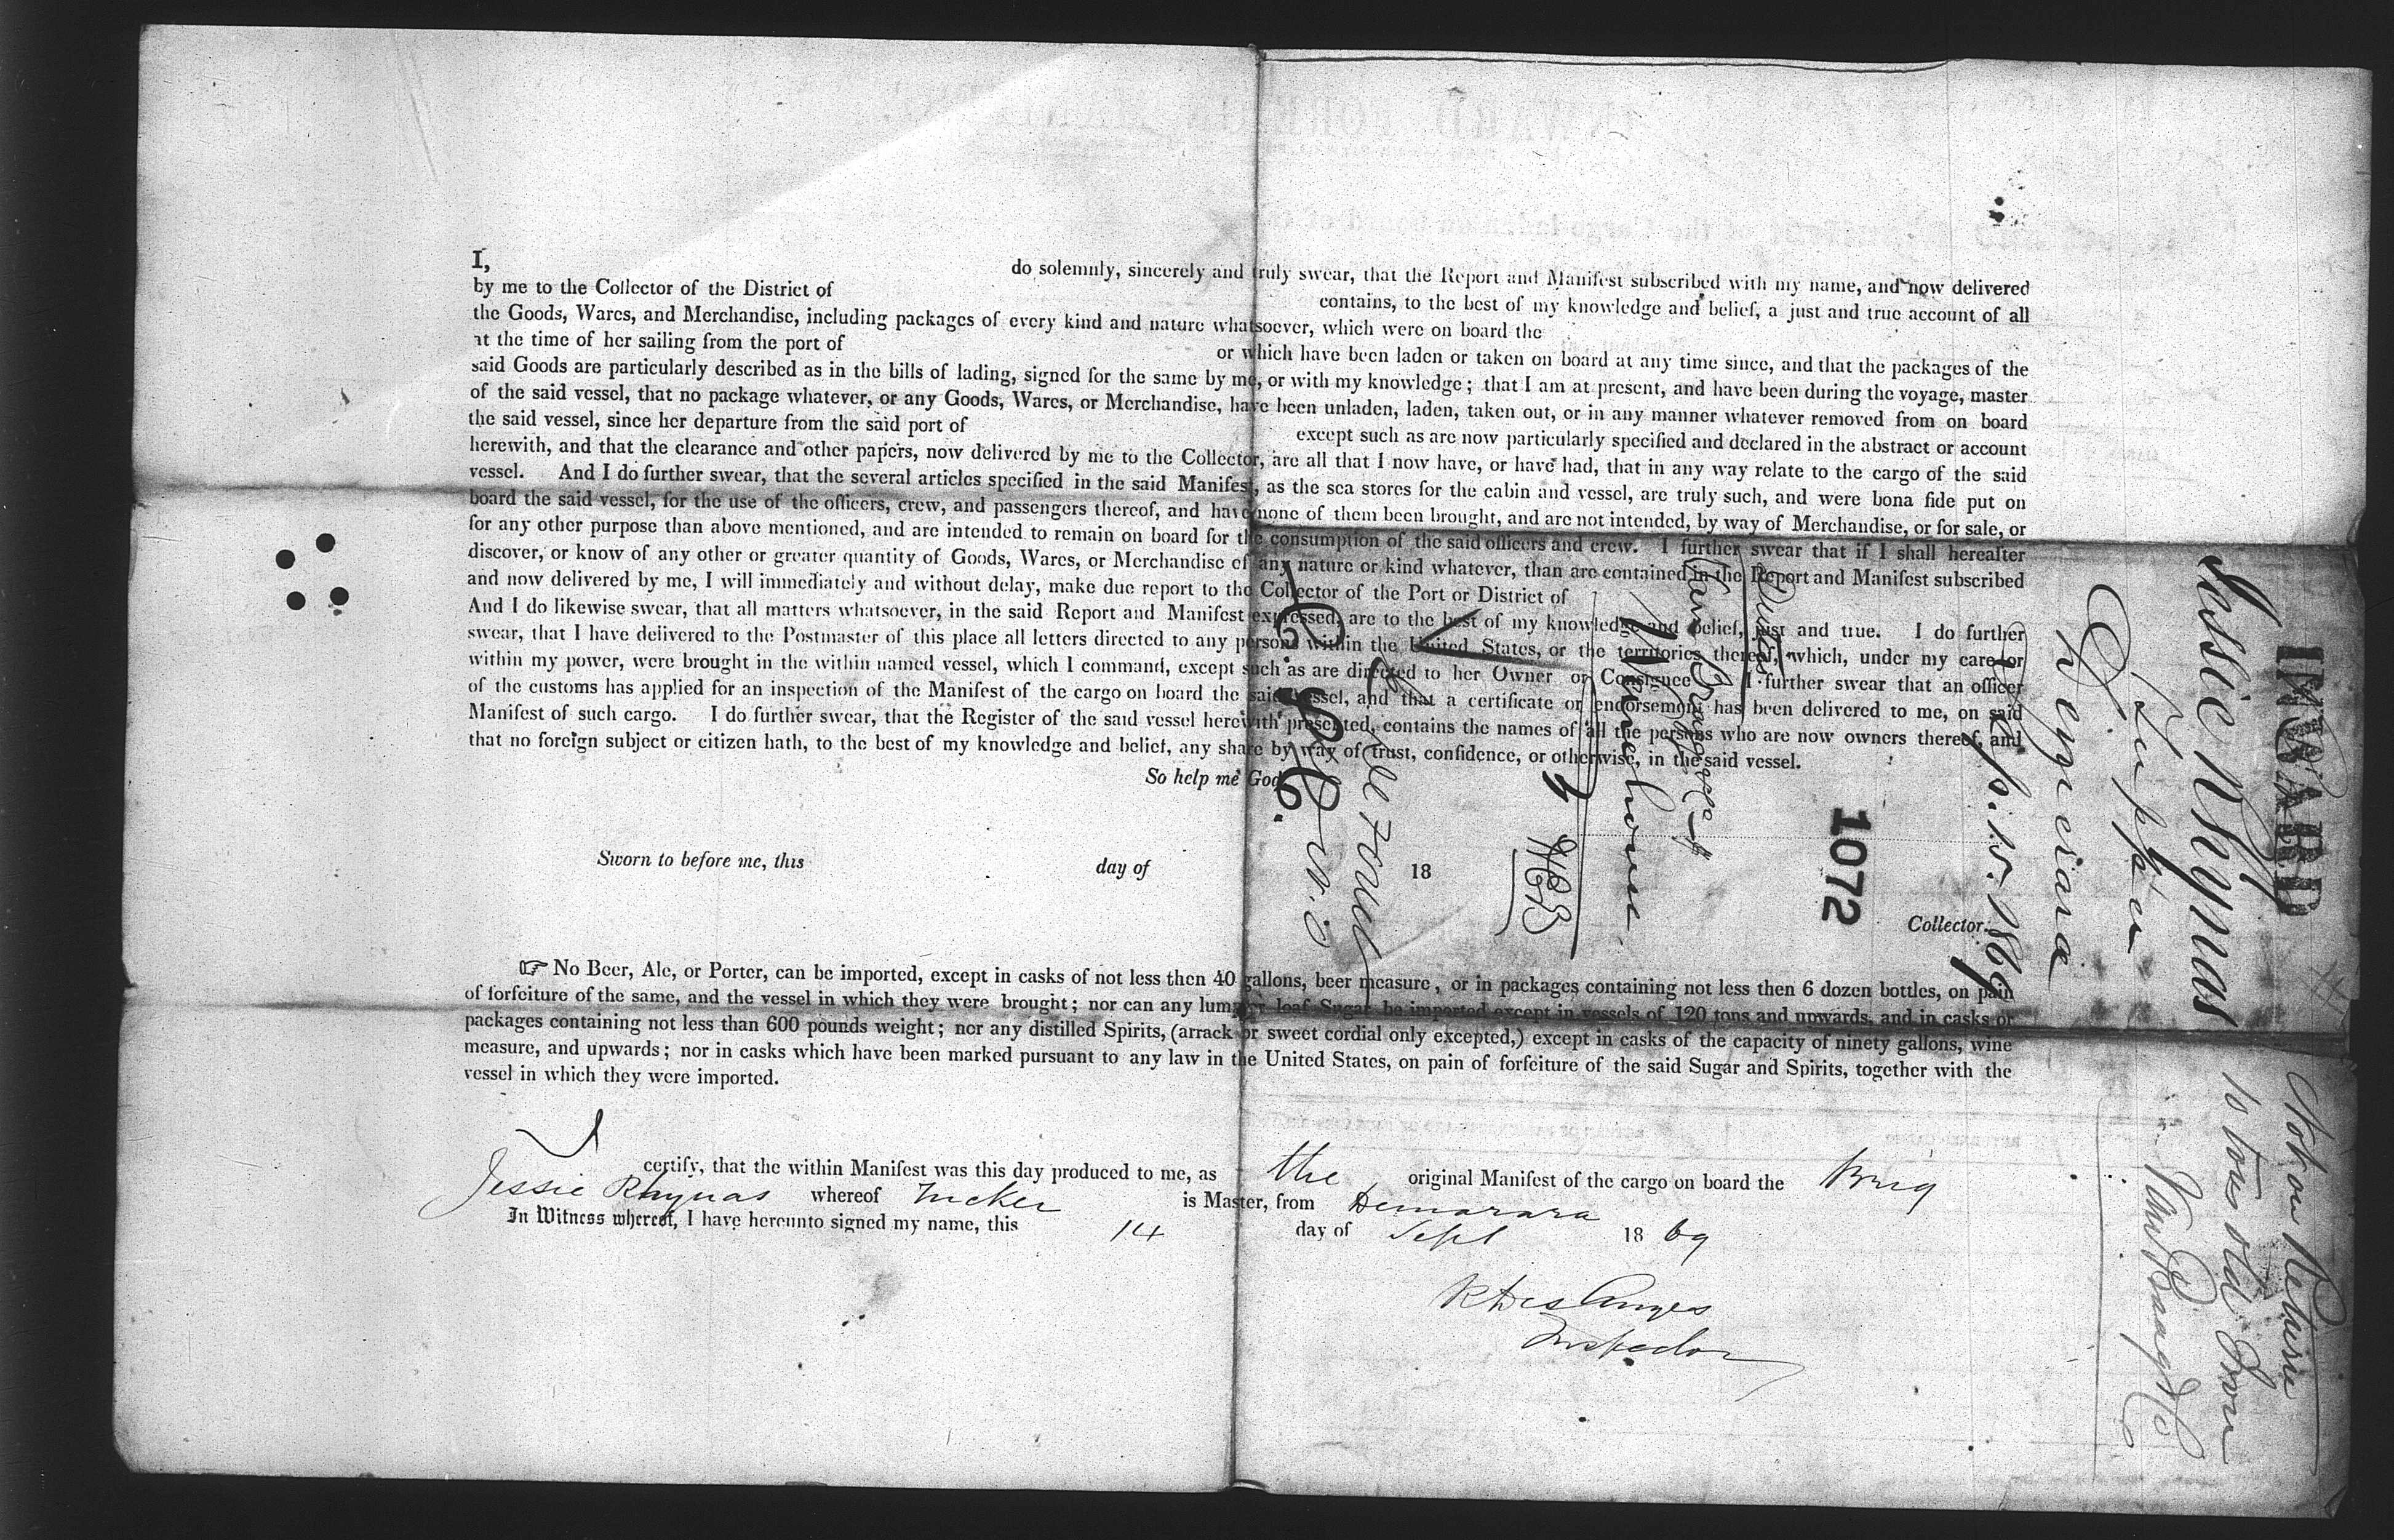 I, do solemnly, sincerely and truly swear, that the Report and Manifest subscribed with my name, and now delivered
by me to the Collector of the District of contains, to the best of my knowledge and belief, a just and true account of all
the Goods, Wares, and Merchandise, including packages of every kind and nature whatsoever, which were on board the
at the time of her sailing from the port of or which have been laden or taken on board at any time since, and that the packages of the
said Goods are particularly described as in the bills of lading, signed for the same by me, or with my knowledge; that I am at present, and have been during the voyage, master
of the said vessel, that no package whatever, or any Goods, Wares, or Merchandise, have been unladen, laden, taken out, or in any manner whatever removed from on board
the said vessel, since her departure from the said port of except such as are now particularly specified and declared in the abstract or account
herewith, and that the clearance and other papers, now delivered by me to the Collector, are all that I now have, or have had, that in any way relate to the cargo of the said
vessel. And I do further swear, that the several articles specified in the said Manifest, as the sea stores for the cabin and vessel, are truly such, and were bona fide put on
board the said vessel, for the use of the officers, crew, and passengers thereof, and have none of them been brought, and are not intended, by way of Merchandise, or for sale, or
for any other purpose than above mentioned, and are intended to remain on board for the consumption of the said officers and crew. I further swear that if I shall hereafter
discover, or know of any other or greater quantity of Goods, Wares, or Merchandise of any nature or kind whatever, than are contained in the Report and Manifest subscribed
and now delivered by me, I will immediately and without delay, make due report to the Collector of the Port or District of
And I do likewise swear, that all matters whatsoever, in the said Report and Manifest expressed, are to the best of my knowledge and belief, just and true. I do further
swear, that I have delivered to the Postmaster of this place all letters directed to any persons within the United States, or the territories thereof, which, under my care or
within my power, were brought in the within named vessel, which I command, except such as are directed to her Owner or Consignee I further swear that an officer
of the customs has applied for an inspection of the Manifest of the cargo on board the said vessel, and that a certificate or endorsement has been delivered to me, on said
Manifest of such cargo. I do further swear, that the Register of the said vessel herewith presented, contains the names of all the persons who are now owners thereof, and
that no foreign subject or citizen hath, to the best of my knowledge and belief, any share by way of trust, confidence, or otherwise, in the said vessel.
So help me God.
Sworn to before me, this day of 18
Collector.
☞ No Beer, Ale, or Porter, can be imported, except in casks of not less then 40 gallons, beer measure, or in packages containing not less then 6 dozen bottles, on pain
of forfeiture of the same, and the vessel in which they were brought; nor can any lump or loaf Sugar be imported except in vessels of 120 tons and upwards, and in casks or
packages containing not less than 600 pounds weight; nor any distilled Spirits, (arrack or sweet cordial only excepted,) except in casks of the capacity of ninety gallons, wine
measure, and upwards; nor in casks which have been marked pursuant to any law in the United States, on pain of forfeiture of the said Sugar and Spirits, together with the
vessel in which they were imported.
I certify, that the within Manifest was this day produced to me, as the original Manifest of the cargo on board the Brig
Jessie Rhynas whereof Tucker is Master, from Demarara
In Witness whereof, I have hereunto signed my name, this 14 day of Sept 18 69
R Des Anges
Inspector
INWARD
Jessie Rhynas
Demerara
Sep. 15. 1869
1072
Warehouse
Not on Return
10 tons old Iron